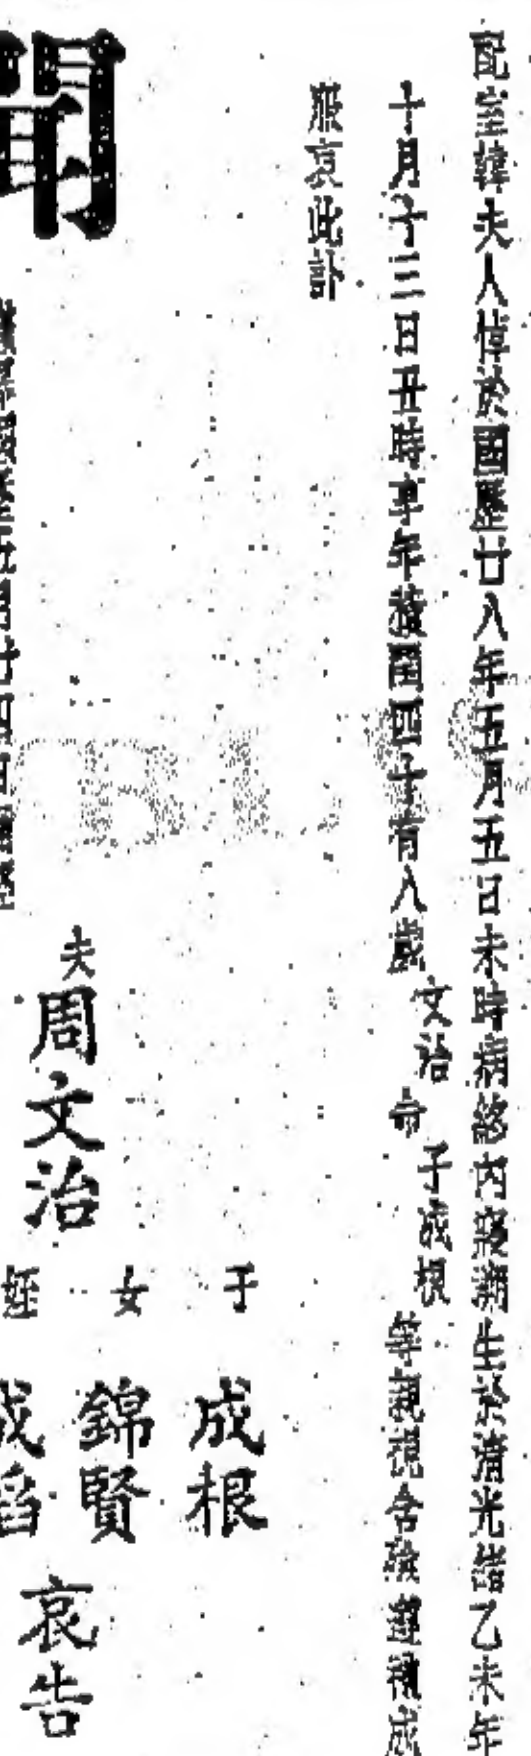 配室韓夫人慟於國曆廿八年五月五日未時病終內寢溯生於清光緒乙未年
十月十三日丑時享年積閏四十有八歲 文治 命 子成根 等親視含殮遵禮成
服哀此訃
聞
夫 周文治
子 成根
女 錦賢
姪 成
哀告